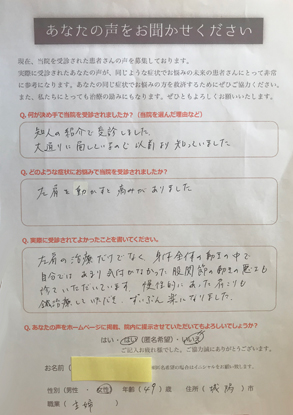 あなたの声をお聞かせください
現在、当院を受診された患者さんの声を募集しております。
実際に受診されたあなたの声が、同じような症状でお悩みの未来の患者さんにとって非常
に参考になります。あなたの同じ症状でお悩みの方を救済するためにぜひご協力ください。
また、私たちにとっても治療の励みにもなります。ぜひともよろしくお願いいたします。
Q. 何が決め手で当院を受診されましたか？（当院を選んだ理由など）
知人の紹介で受診しました。
大通りに面しているので以前より知っていました。
Q. どのような症状にお悩みで当院を受診されましたか？
左肩を動かすと痛みがありました
Q. 実際に受診されてよかったことを書いてください。
左肩の治療だけでなく、身体全体の動きの中で
自分ではあまり気付かなかった股関節の動きの悪さも
治していただいています。慢性的にあった肩こりも
鍼治療していただき、ずいぶん楽になりました。
Q. あなたの声をホームページに掲載、院内に提示させていただいてもよろしいでしょうか？
はい・はい（匿名希望）・いいえ
ご記入お疲れ様でした。ご協力誠にありがとうございます。
お名前（
匿名希望の場合はイニシャルをお願い致します。
性別（男性・女性） 年齢（49）歳 住所（城陽）市
職業（主婦）